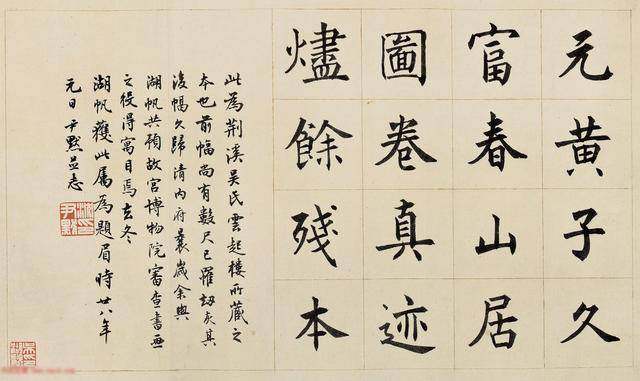 元黄子久
富春山居
圖卷真迹
燼餘殘本
此為荆溪吴氏雲起樓所藏之
本也前幅尚有數尺已罹劫灰其
後幅久歸清内府曩歲余與
湖帆共預故宫博物院審查書画
之役得寓目焉去冬
湖帆獲此属為題眉時廿八年
元日尹默並志
尹默